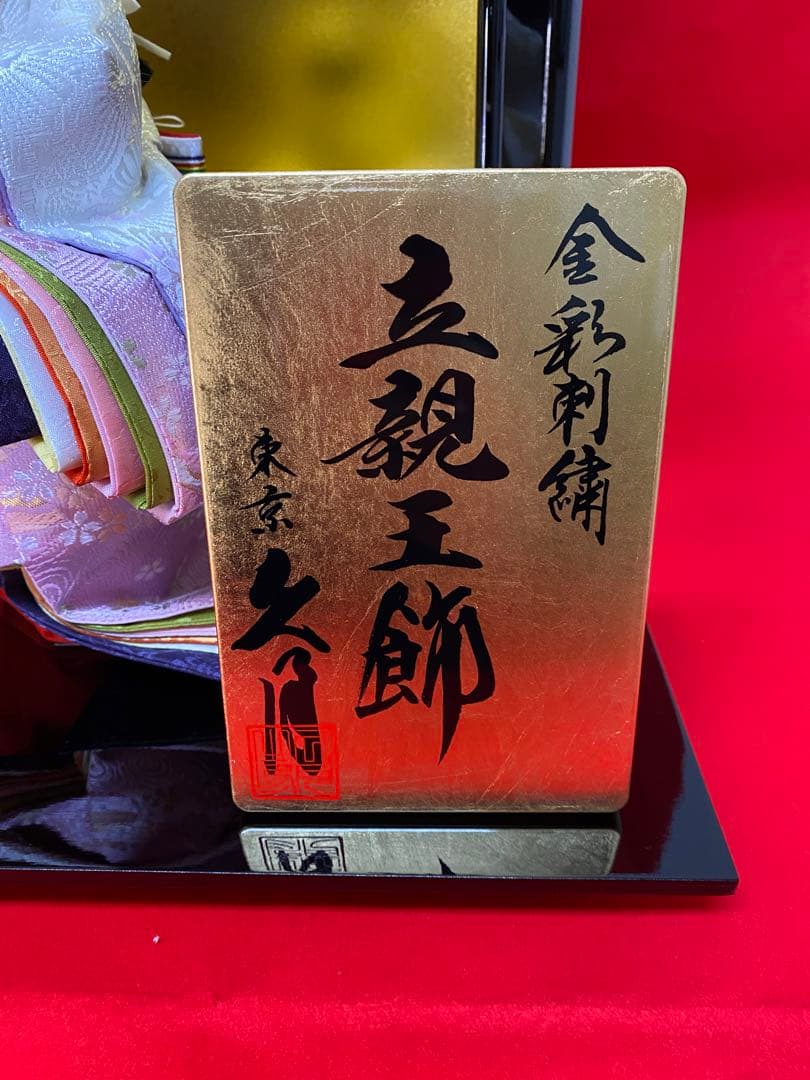 金彩刺繍
立親王飾
東京久月